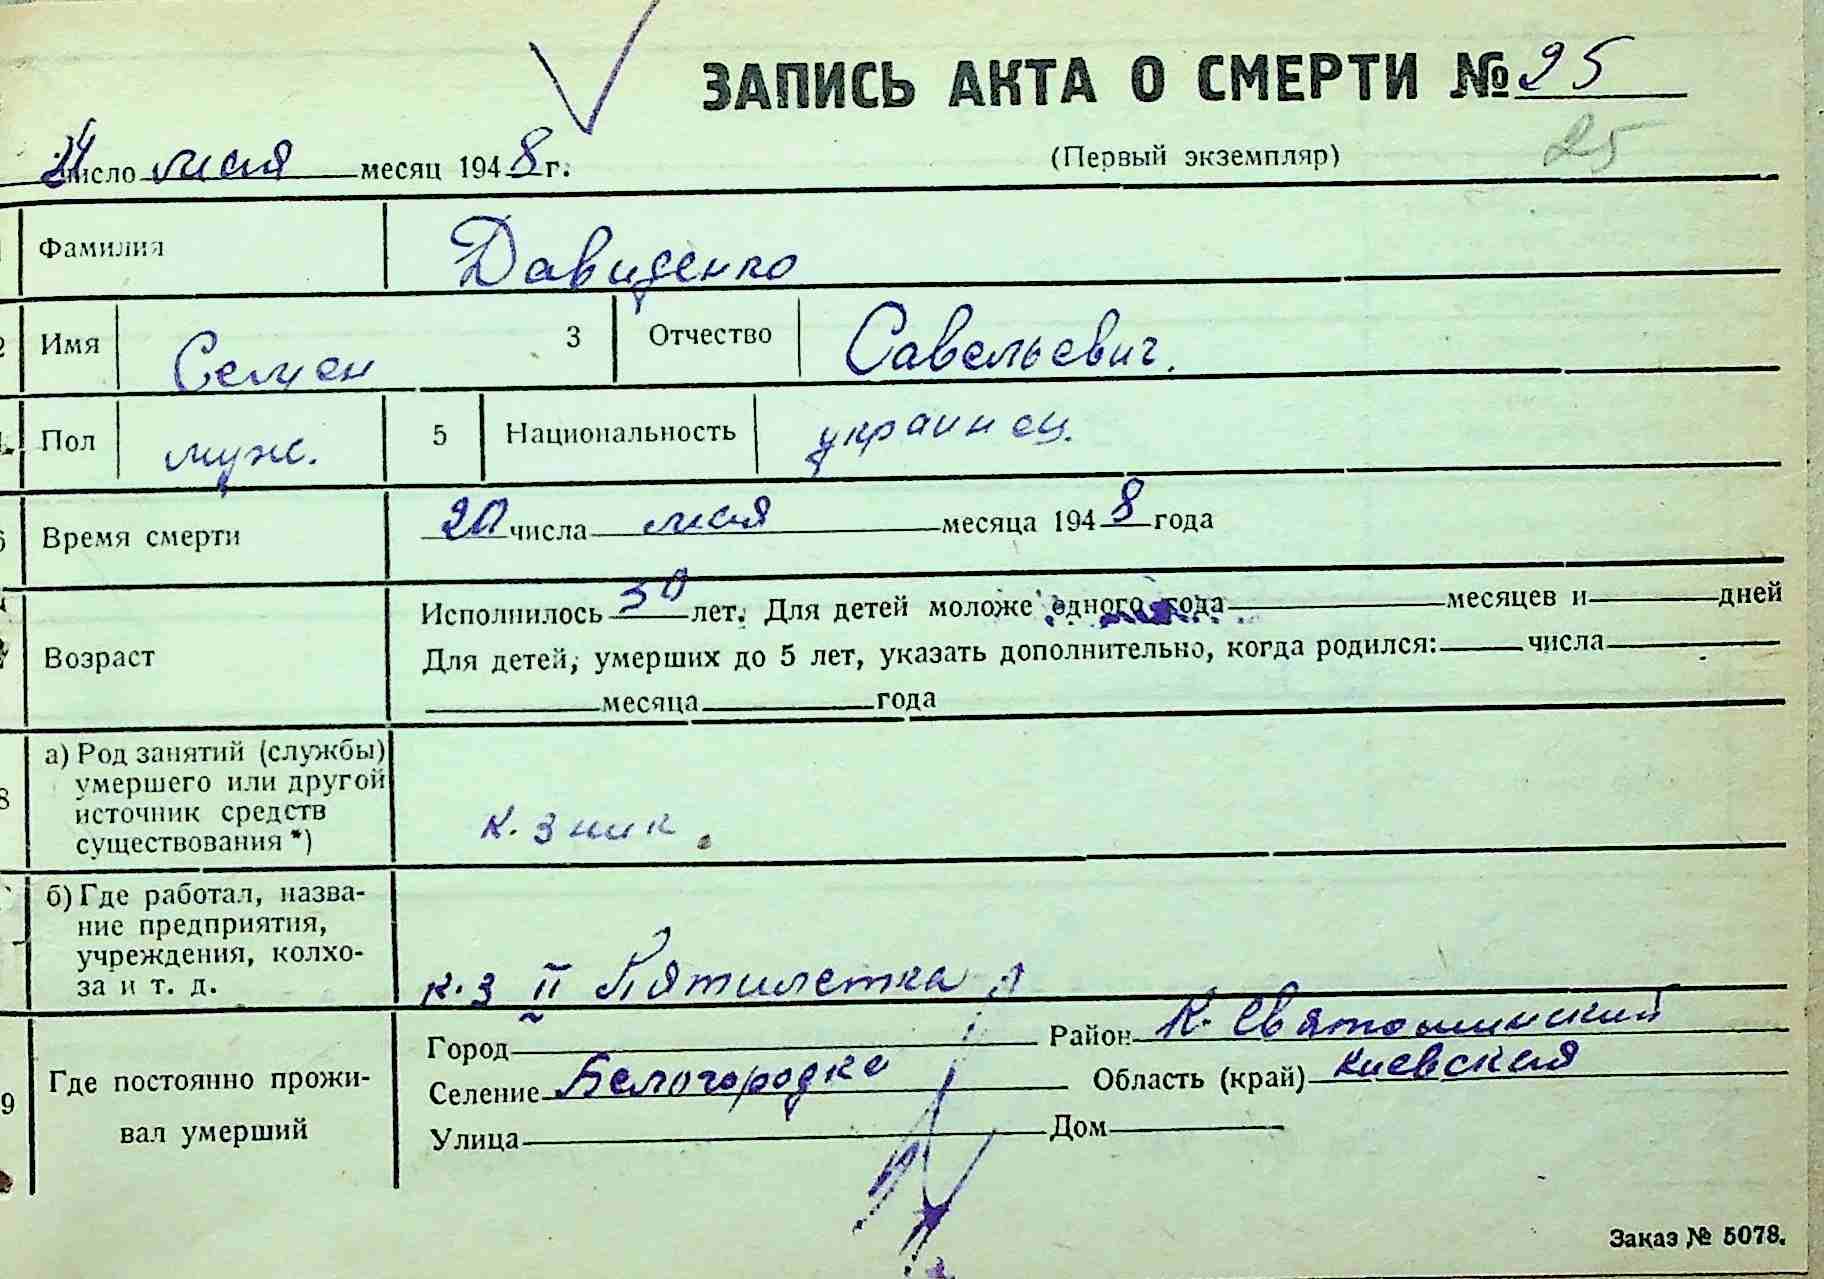 ЗАПИСЬ АКТА О СМЕРТИ № 25
25
21 число мая месяц 1948 г.
(Первый экземпляр)
Фамилия Давиденко
2 Имя Семен 3 Отчество Савельевич.
Пол муж. 5 Национальность украинец.
6 Время смерти 20 числа мая месяца 1948 года
Возраст
Исполнилось 50 лет. Для детей моложе одного года месяцев и дней
Для детей, умерших до 5 лет, указать дополнительно, когда родился: числа
месяца года
8
а) Род занятий (службы)
умершего или другой
источник средств
существования *)
к. зник.
б) Где работал, назва-
ние предприятия,
учреждения, колхо-
за и т. д.
к.з II Пятилетка
9 Где постоянно прожи-
вал умерший
Город Район К. Святошинский
Селение Белогородка Область (край) Киевская
Улица Дом
Заказ № 5078.